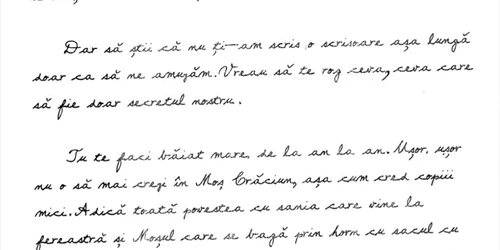 Dar să știi că nu ți-am scris o scrisoare așa lungă
doar ca să ne amuzăm. Vreau să te rog ceva, ceva care
să fie doar secretul nostru.
Tu te faci băiat mare, de la an la an. Ușor, ușor
nu o să mai crezi în Moș Crăciun, așa cum cred copiii
mici. Adică toată povestea cu sania care vine la
fereastră și Moșul care se bagă prin horm cu sacul cu